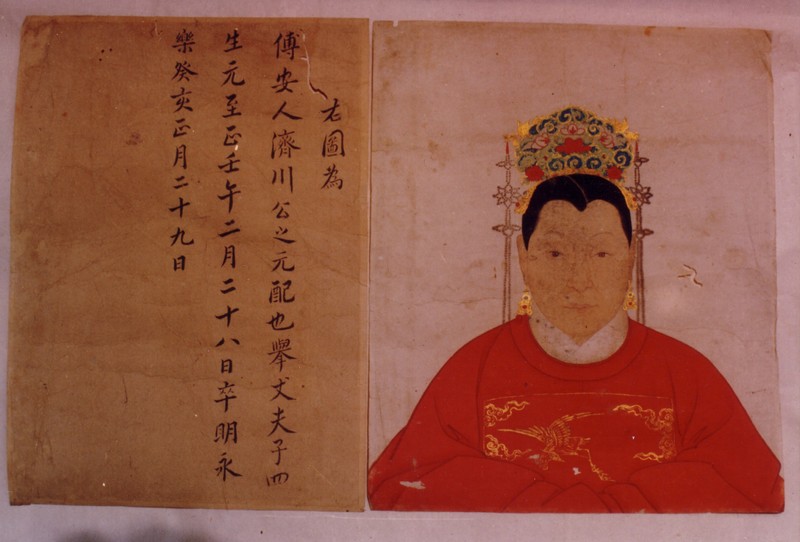 右圖為
傅安人濟川公之元配也舉丈夫子四
生元至正壬午二月二十八日卒明永
樂癸亥正月二十九日